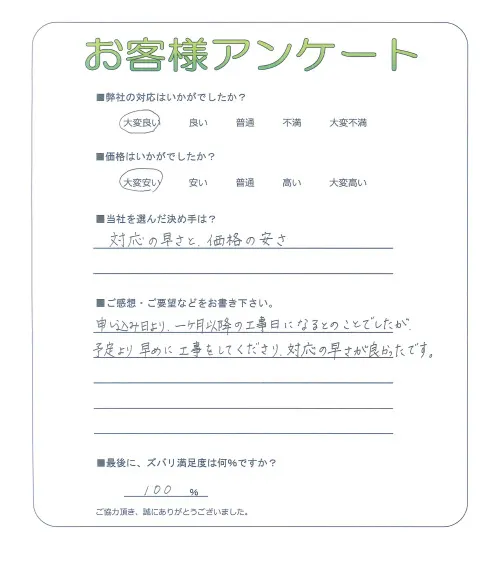 お客様アンケート
■弊社の対応はいかがでしたか？
大変良い 良い 普通 不満 大変不満
■価格はいかがでしたか？
大変安い 安い 普通 高い 大変高い
■当社を選んだ決め手は？
対応の早さと、価格の安さ
■ご感想・ご要望などをお書き下さい。
申し込み日より、一ヶ月以降の工事日になるとのことでしたが、
予定より早めに工事をしてくださり、対応の早さが良かったです。
■最後に、ズバリ満足度は何％ですか？
100 ％
ご協力頂き、誠にありがとうございました。